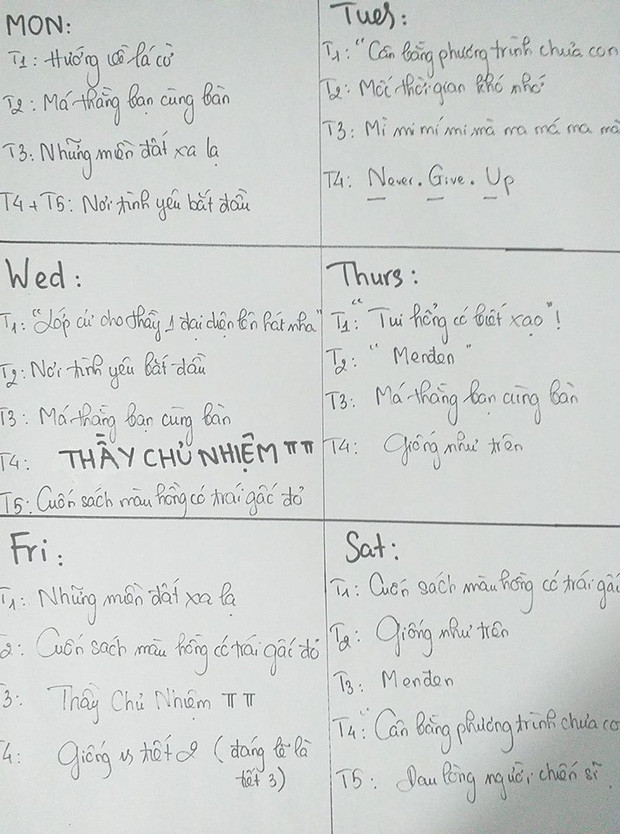 MON:
T1: Hướng về lá cờ
T2: Má thằng bạn cùng bàn
T3: Những miền đất xa lạ
T4 + T5: Nơi tình yêu bắt đầu
Tues:
T1: "Cân bằng phương trình chưa con
T2: Mốc thời gian khó nhớ
T3: Mi mi mí mi mà ma má ma mà
T4: Never. Give. Up
Wed:
T1: "Lớp cử cho thầy 1 đại diện lên hát nha"
T2: Nơi tình yêu bắt đầu
T3: Má thằng bạn cùng bàn
T4: THẦY CHỦ NHIỆM TT TT
T5: Cuốn sách màu hồng có trái gấc đỏ
Thurs:
T1: "Tui hổng có biết xạo"!
T2: "Menden"
T3: Má thằng bạn cùng bàn
T4: Giống như trên
Fri:
T1: Những miền đất xa lạ
2: Cuốn sách màu hồng có trái gấc đỏ
3: Thầy Chủ Nhiệm TT TT
4: Giống tiết 2 (đáng lẽ là
tiết 3)
Sat:
T1: Cuốn sách màu hồng có trái gấc
T2: Giống như trên
T3: Menden
T4: "Cân bằng phương trình chưa co
T5: Đau lòng người chiến sĩ